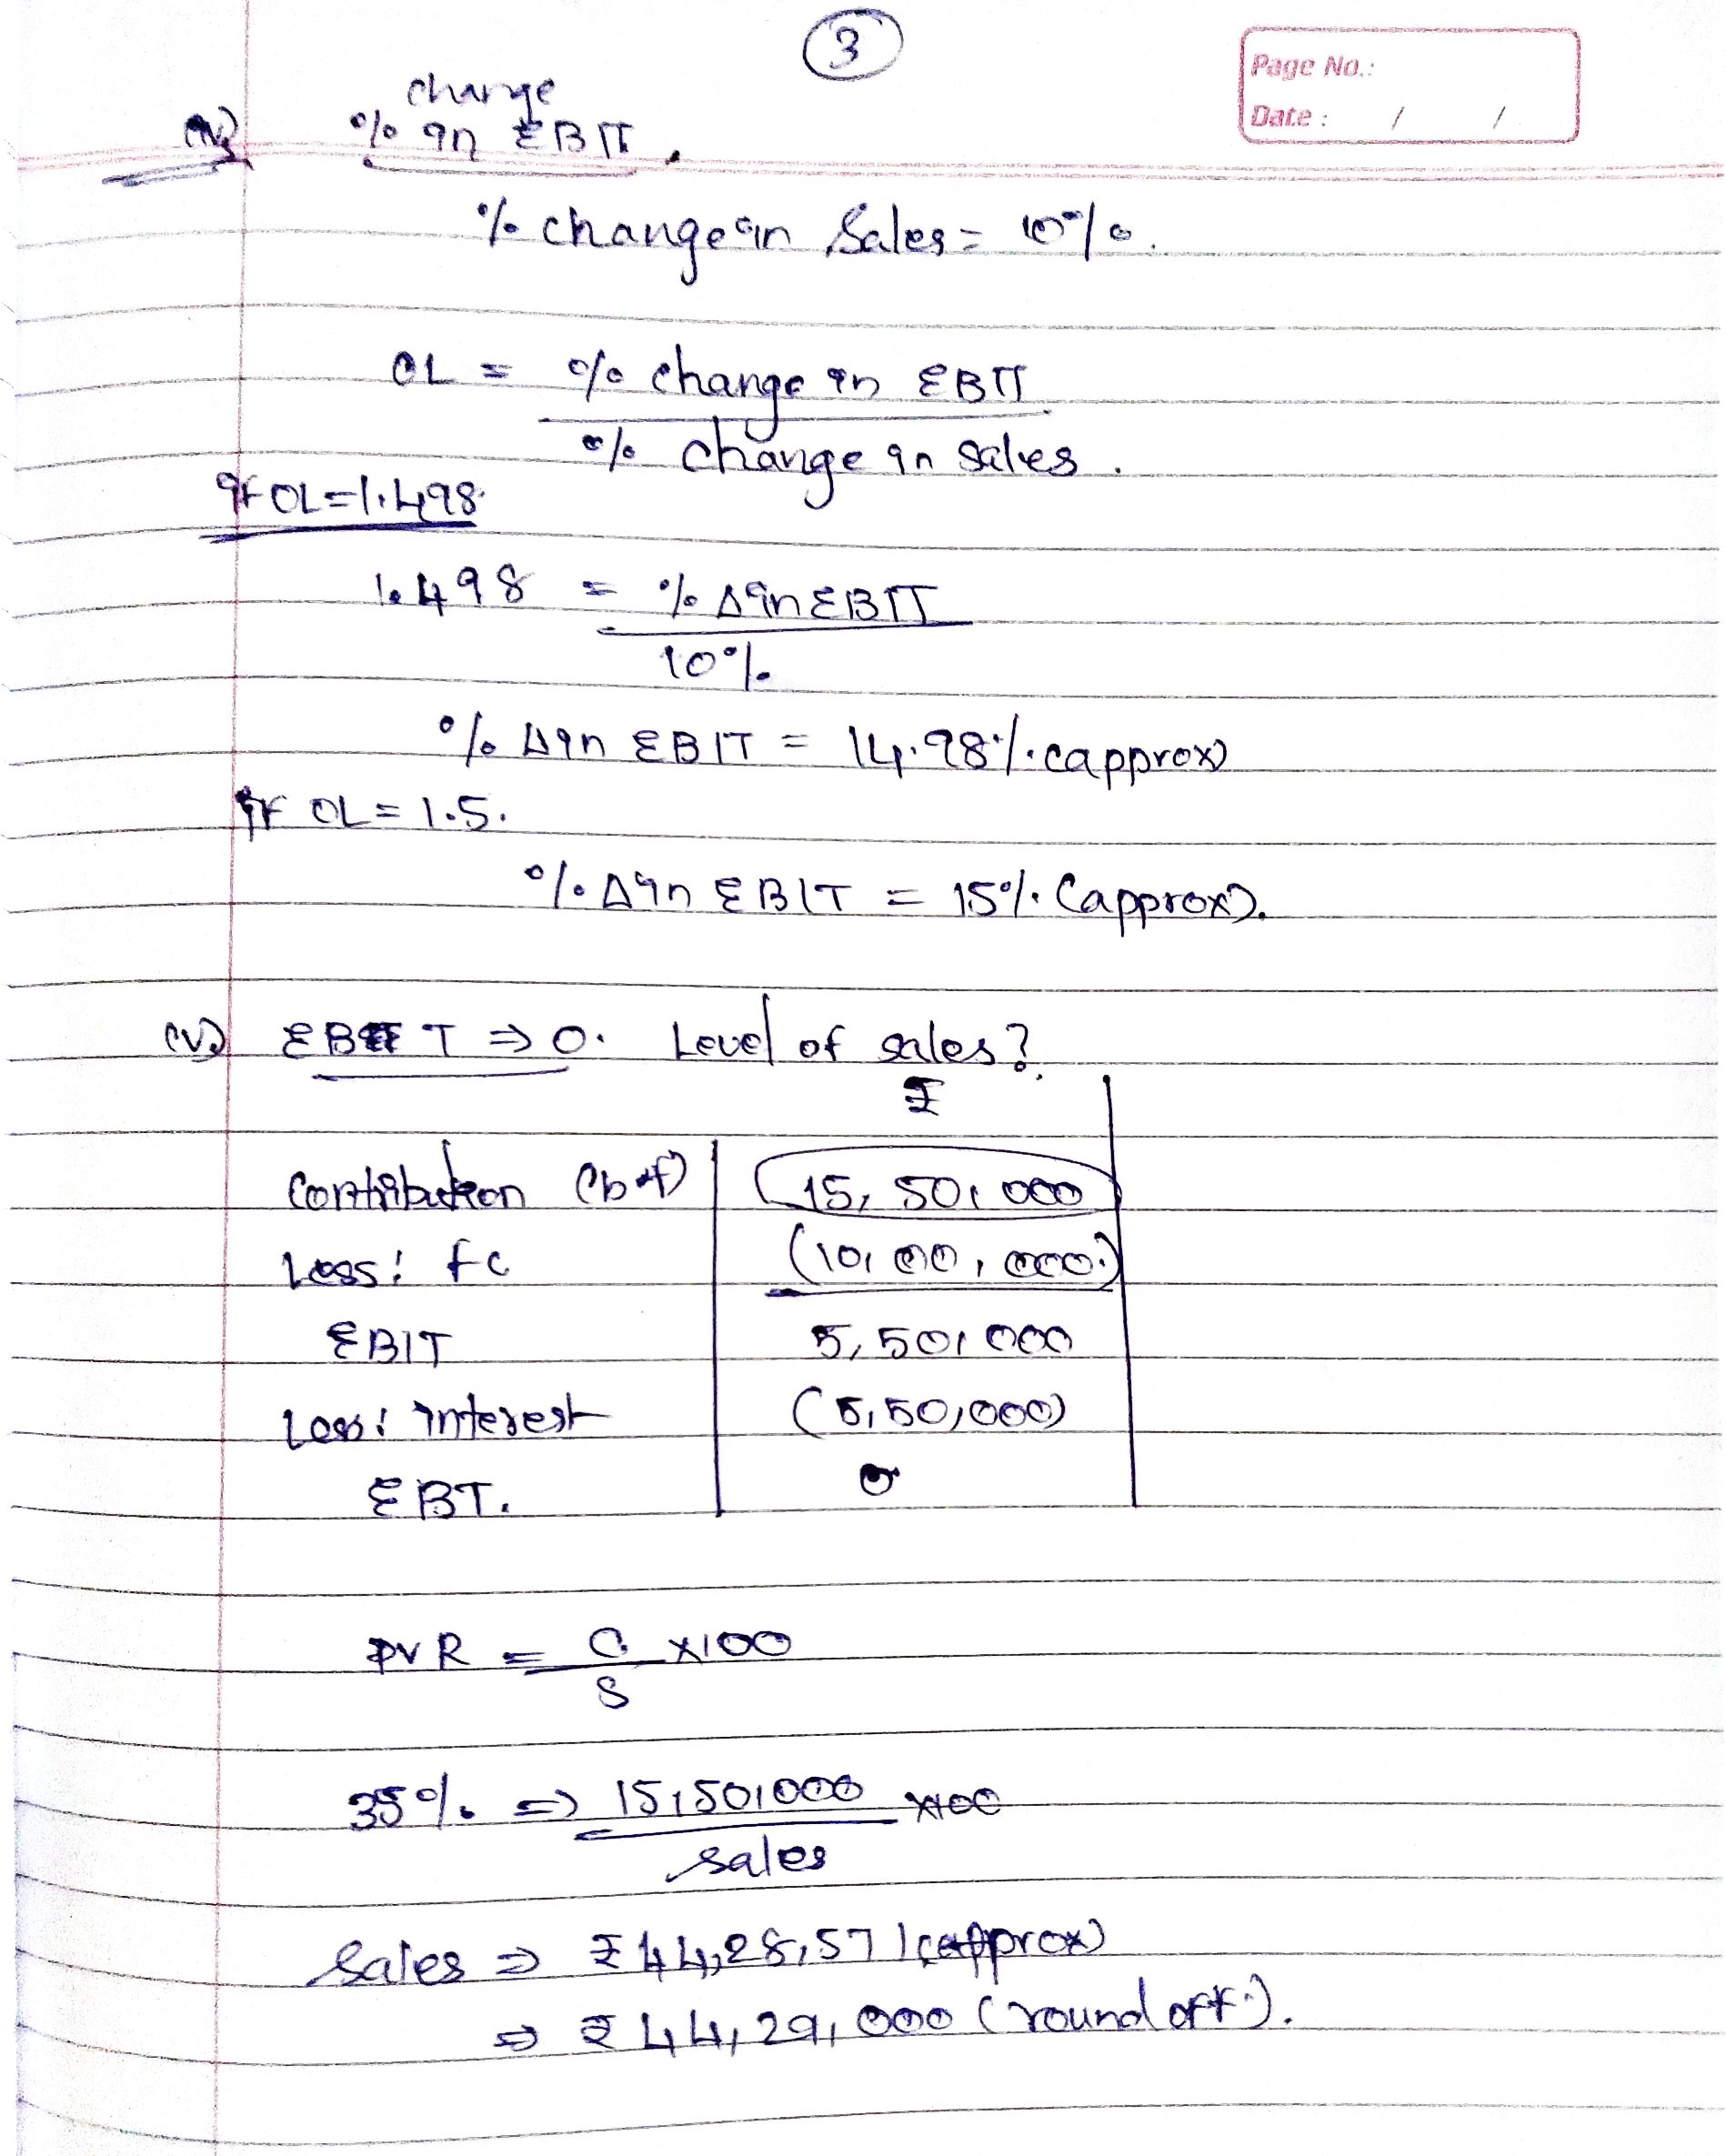 3
Page No.:
Date : / /
change
(iv) % in EBIT.
% change in Sales = 10%.
OL = % change in EBIT
% change in sales.
If OL=1.498.
1.498 = % Δ in EBIT
10%
% Δ in EBIT = 14.98% (approx)
If OL = 1.5.
% Δ in EBIT = 15% (approx).
(v) EBT ⇒ 0. Level of sales?
₹
Contribution (b.f) 15,50,000
Less: fc (10,00,000)
EBIT 5,50,000
Less: Interest (5,50,000)
EBT. 0
PVR = C ×100
S
35% ⇒ 15,50,000 ×100
sales
Sales ⇒ ₹ 44,28,571 (approx)
⇒ ₹ 44,29,000 (round off).